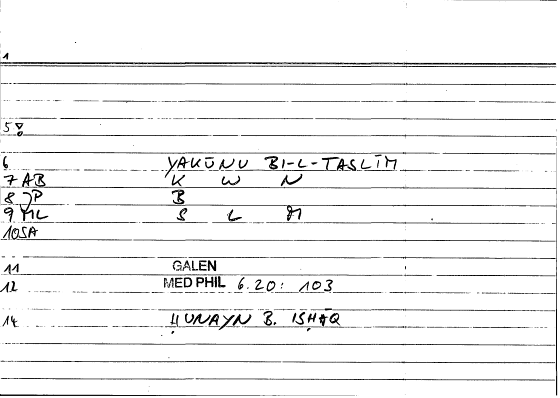 1
5
6 YAKŪNU BI-L-TASLĪM
7 AB K W N
8 JP B
9 ML S L M
10 SA
11 GALEN
12 MED PHIL 6.20: 103
14 ḤUNAYN B. ISḤĀQ